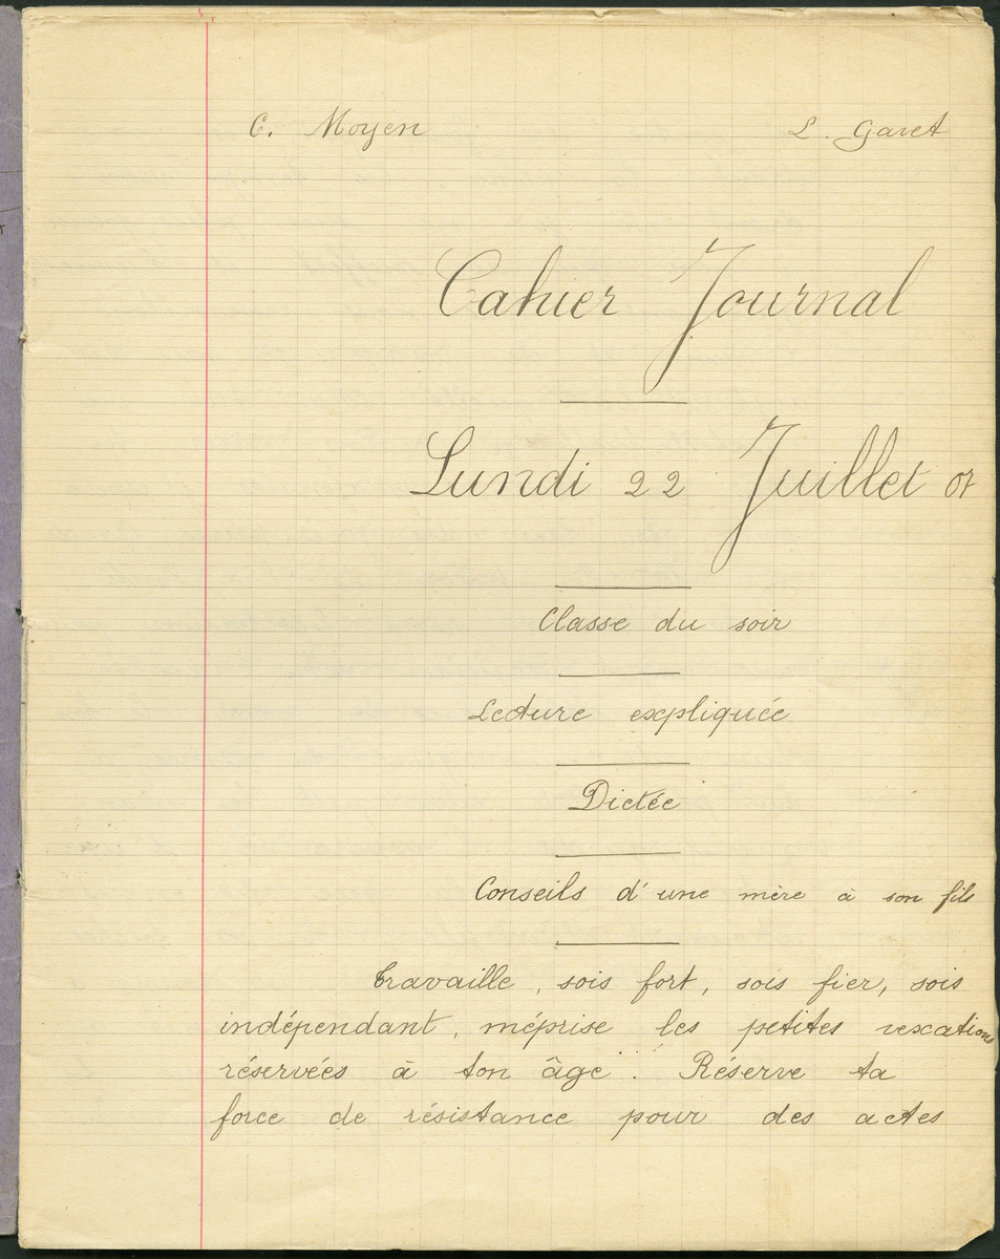 C. Moyen L. Garet
Cahier Journal
Lundi 22 Juillet 07
Classe du soir
Lecture expliquée
Dictée
Conseils d'une mère à son fils
Travaille, sois fort, sois fier, sois
indépendant, méprise les petites vexations
réservées à ton âge. Réserve ta
force de résistance pour des actes